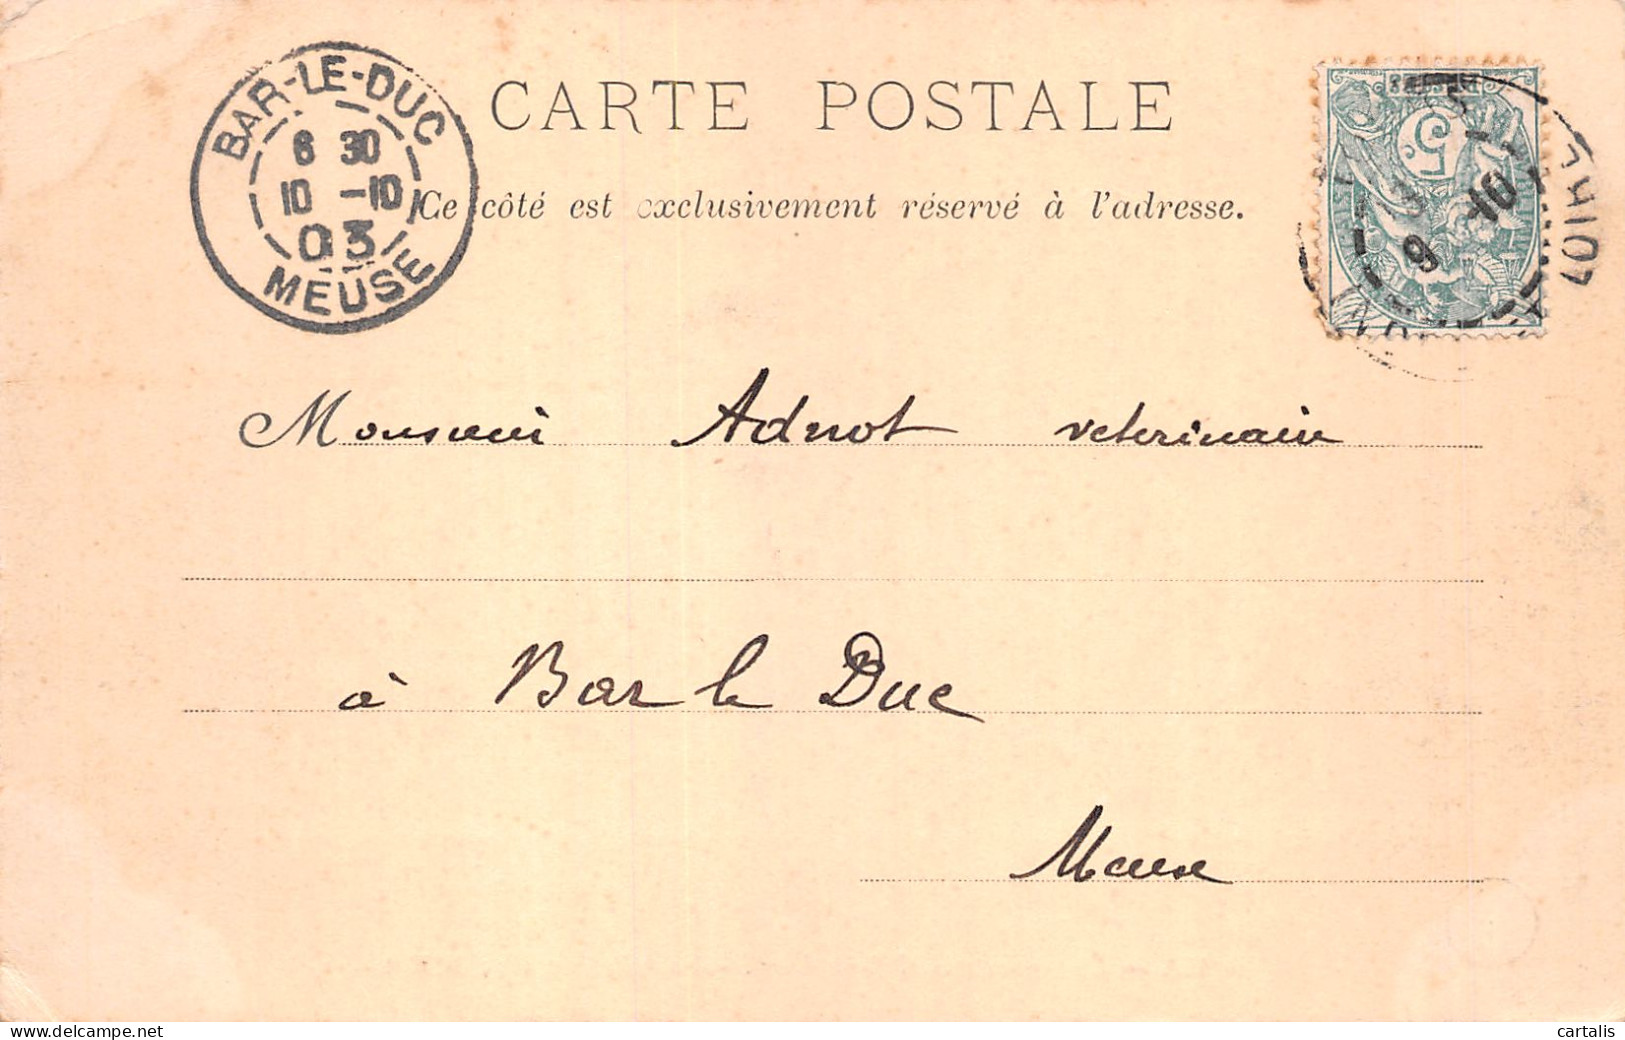 CARTE POSTALE
Ce côté est exclusivement réservé à l'adresse.
BAR-LE-DUC
6 30
10 -10
03
MEUSE
5
9 -10
Monsieur Adnot veterinaire
à Bar le Duc
Meuse
delcampe.net
cartalis